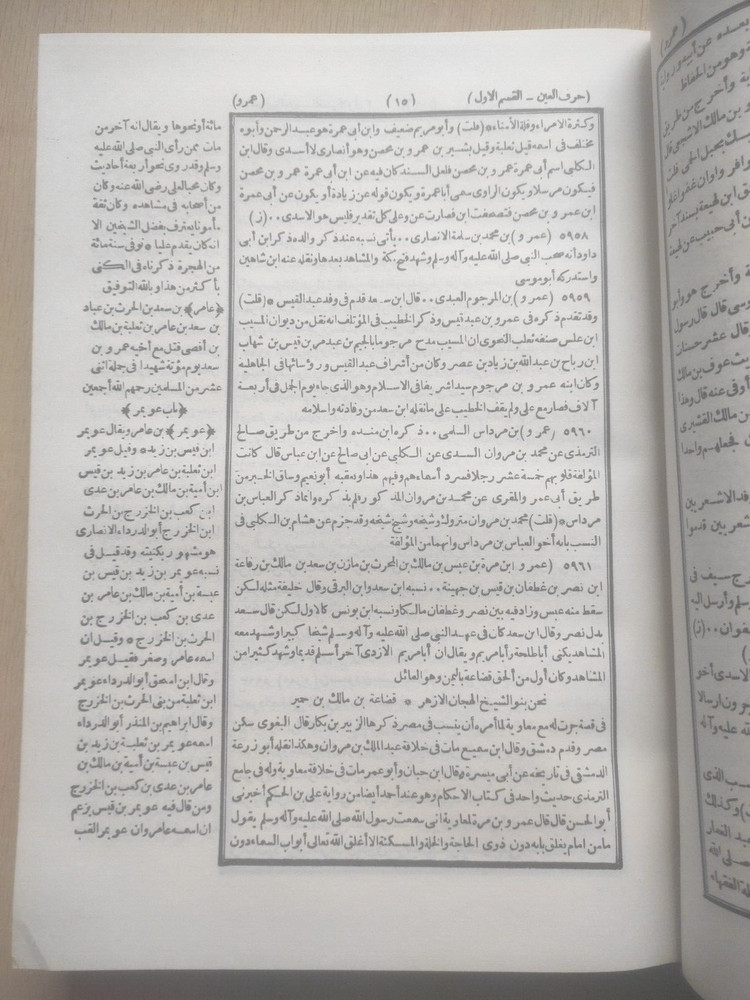 (حرف العين – القسم الاول)
(١٥)
(عمرو)
وكثرة الامراء وقلة الأمناء * (قلت) وأبو مريم ضعيف وابن أبي عمرة هو عبد الرحمن وأبوه
مختلف في اسمه قيل ثعلبة وقيل بشير بن عمرو بن محصن وهو أنصاري لا أسدي وقال ابن
الكلبي اسم أبي عمرة عمرو بن محصن فلعل السند كان فيه عن ابن أبي عمرة عمرو بن محصن
فيكون مرسلا ويكون الراوي سمى أبا عمرة ويكون قوله عن زيادة أو يكون عن أبي عمرة
ابن عمرو بن محصن فتصحفت ابن فصارت عن وعلى كل تقدير فليس هو الاسدي .. (ز)
٥٩٥٨ (عمرو) بن محمد بن سلمة الانصاري .. يأتي نسبه عند ذكر والده ذكر ابن أبي
داود أنه صحب النبي صلى الله عليه وآله وسلم وشهد فتح مكة والمشاهد بعدها ونقله عنه ابن شاهين
واستدركه أبو موسى
٥٩٥٩ (عمرو) بن المرجوم العبدي .. قال ابن سعد قدم في وفد عبد القيس * (قلت)
وقد تقدم ذكره في عمرو بن عبد قيس وذكر الخطيب في المؤتلف انه نقل من ديوان المسيب
ابن علس صنفه ثعلب النحوي ان المسيب مدح مرجوما بالجيم بن عبد مر بن قيس بن شهاب
ابن رباح بن عبد الله بن زياد بن عصر وكان من أشراف عبد القيس ورؤسائها في الجاهلية
وكان ابنه عمرو بن مرجوم سيدا شريفا في الاسلام وهو الذي جاء يوم الجمل في أربعة
آلاف فصار مع علي ولم يقف الخطيب على ما نقله ابن سعد من وفادته واسلامه
٥٩٦٠ (عمرو) بن مرداس السلمي .. ذكره ابن منده وأخرج من طريق صالح
الترمذي عن محمد بن مروان السدي عن الكلبي عن أبي صالح عن ابن عباس قال كانت
المؤلفة قلوبهم خمسة عشر رجلا فسرد أسماءهم وفيهم هذا وتعقبه أبو نعيم وساق الخبر من
طريق أبي عمر والمقري عن محمد بن مروان المذكور فلم يذكره وانما ذكر العباس بن
مرداس * (قلت) محمد بن مروان متروك وشيخه وشيخ شيخه وقد جزم عن هشام بن الكلبي في
النسب بانه أخو العباس بن مرداس وانهما من المؤلفة
٥٩٦١ (عمرو) بن مرة بن عبس بن مالك بن المحرث بن مازن بن سعد بن مالك بن رفاعة
ابن نصر بن غطفان بن قيس بن جهينة .. نسبه ابن سعد وابن البرقي وقال خليفة مثله لكن
سقط منه عبس وزاد فيه بين نصر وغطفان مالكا ونسبه ابن يونس كالاول لكن قال سعد
بدل نصر وقال ابن سعد كان في عهد النبي صلى الله عليه وآله وسلم شيخا كبيرا وشهد معه
المشاهد يكنى أبا طلحة وأبا مريم ويقال ان أبا مريم الازدي آخر أسلم قديما وشهد كثيرا من
المشاهد وكان أول من ألحق قضاعة باليمن وهو القائل
نحن بنو الشيخ الهجان الازهر * قضاعة بن مالك بن حمير
في قصة جرت له مع معاوية لما أمره أن ينتسب في مصر ذكرها الزبير بن بكار قال البغوي سكن
مصر وقدم دمشق وقال ابن سميع مات في خلافة عبد الملك بن مروان وهكذا نقله أبو زرعة
الدمشقي في تاريخه عن أبي ميسرة * قال ابن حبان وأبو عمر مات في خلافة معاوية وله في جامع
الترمذي حديث واحد في كتاب الاحكام وهو عند أحمد أيضا من رواية علي بن الحكم أخبرني
أبو الحسن قال قال عمرو بن مرة لمعاوية اني سمعت رسول الله صلى الله عليه وآله وسلم يقول
ما من امام يغلق بابه دون ذوي الحاجة والخلة والمسكنة الا أغلق الله تعالى أبواب السماء دون
مائة أو نحوها ويقال انه آخر من
مات ممن رأى النبي صلى الله عليه
وسلم وقد روى نحو أربعة أحاديث
وكان محبا لعلي رضي الله عنه وكان
من أصحابه في مشاهده وكان ثقة
مأمونا يعترف بفضل الشيخين الا
انه كان يقدم عليا * توفي سنة مائة
من الهجرة ذكرناه في الكنى
بأكثر من هذا وبالله التوفيق
﴿عامر﴾ بن سعد بن الحرث بن عباد
بن سعد بن عامر بن ثعلبة بن مالك
بن أفصى قتل مع أخيه عمرو بن
سعد يوم مؤتة شهيدا في جملة اثني
عشر من المسلمين رحمهم الله أجمعين
﴿باب عويمر﴾
﴿عويمر﴾ بن عامر ويقال عويمر
ابن قيس بن زيد * وقيل عويمر
ابن ثعلبة بن عامر بن زيد بن قيس
ابن أمية بن مالك بن عامر بن عدى
ابن كعب بن الخزرج بن الحرث
ابن الخزرج أبو الدرداء الانصاري
هو مشهور بكنيته وقد قيل في
نسبه عويمر بن زيد بن قيس بن
عبسة بن أمية بن مالك بن عامر بن
عدى بن كعب بن الخزرج بن
الحرث بن الخزرج * وقيل ان
اسمه عامر وصغر فقيل عويمر
وقال ابن اسحق أبو الدرداء عويمر
ابن ثعلبة من بني الحرث بن الخزرج
وقال ابراهيم بن المنذر أبو الدرداء
اسمه عويمر بن ثعلبة بن زيد بن
قيس بن عبسة بن أمية بن مالك بن
عامر بن عدى بن كعب بن الخزرج
ومن قال فيه عويمر بن قيس يزعم
ان اسمه عامر وان عويمر لقب